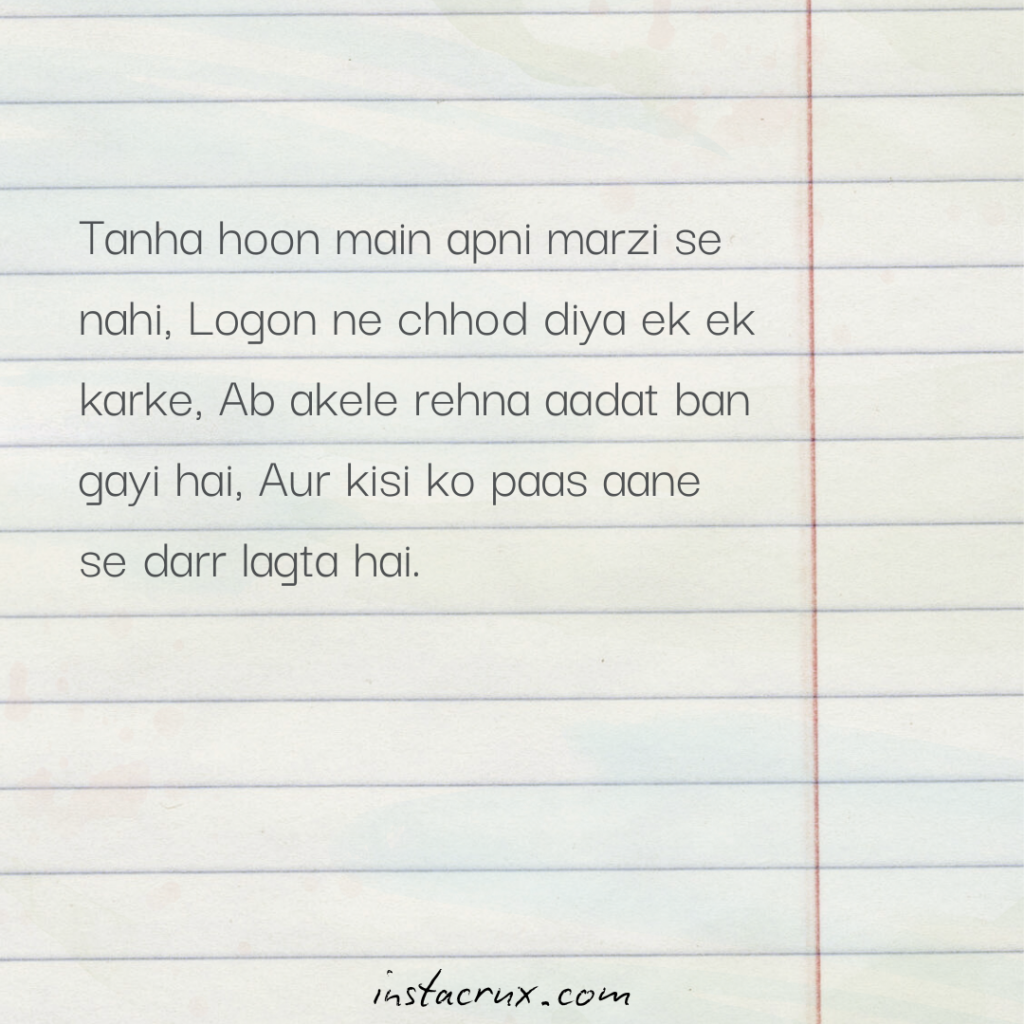 Tanha hoon main apni marzi se
nahi, Logon ne chhod diya ek ek
karke, Ab akele rehna aadat ban
gayi hai, Aur kisi ko paas aane
se darr lagta hai.
instacrux.com